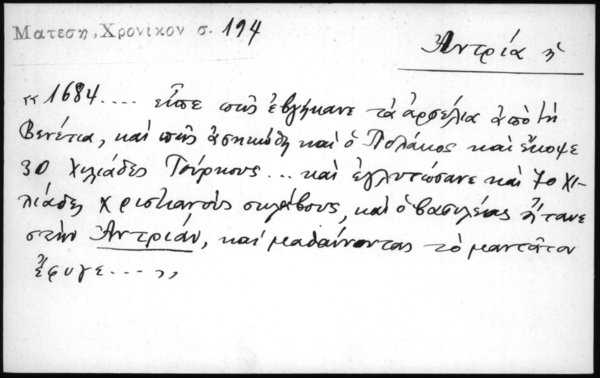 Ματεση, Χρονικον σ. 194
Ἀντρία ἡ
«1684.... εἶπε πὼς ἐβγήκανε τὰ ἀρσέλια ἀπὸ τὴ
Βενέτια, καὶ πὼς ἀσηκώθη καὶ ὁ Πολάκος καὶ ἔκοψε
30 χιλιάδες Τούρκους... καὶ ἐγλυτώσανε καὶ 70 χι-
λιάδες χριστιανοὺς σκλάβους, καὶ ὁ βασιλέας ἤτανε
στὴν Ἀντριάν, καὶ μαθαίνοντας τὸ μαντᾶτον
ἔφυγε....»